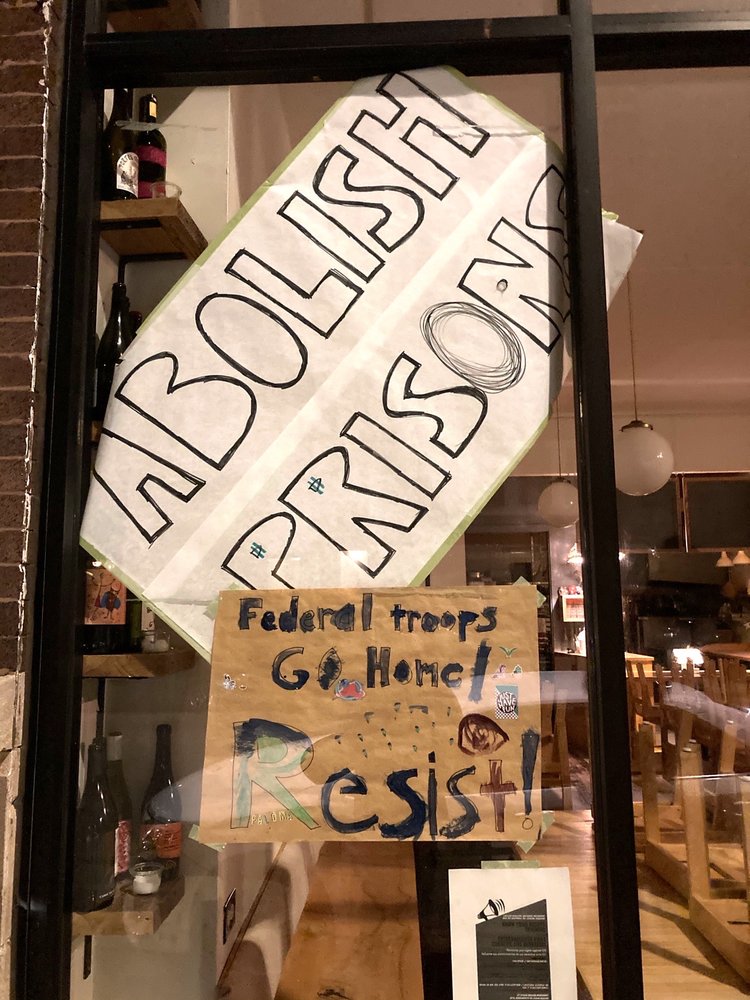 ABOLISH
PRISONS
Federal troops
Go Home!
JUST
HAVE
FUN
Resist!
PALOMA